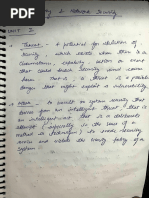 Unit 2
Threat - A potential for violation of
security, which exists when there is a
circumstance, capability, action or event
that could breach security and cause
harm. That is, a threat is a possible
danger that might exploit a vulnerability.
Attack - An assault on system security that
derives from an intelligent threat, that is
an intelligent act that is a deliberate
attempt (especially in the sense of a
method or technique) to evade security
services and violate the security policy of
a system.